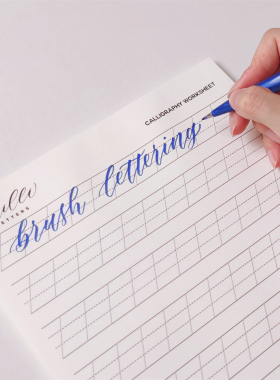 CALLIGRAPHY WORKSHEET
LETTERS
brush lettering